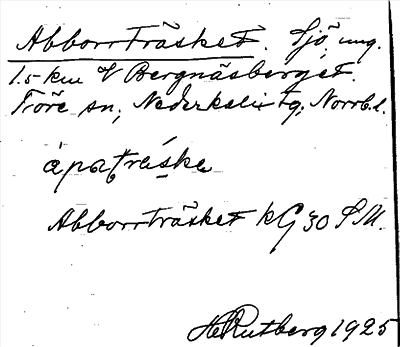 Abborrträsket. Sjö, ung.
1.5 km V Bergnäsberget.
Töre sn, Nederkalix tg, Norrb. l.
Abborrträsket kG 30 SM.
H Rutberg 1925